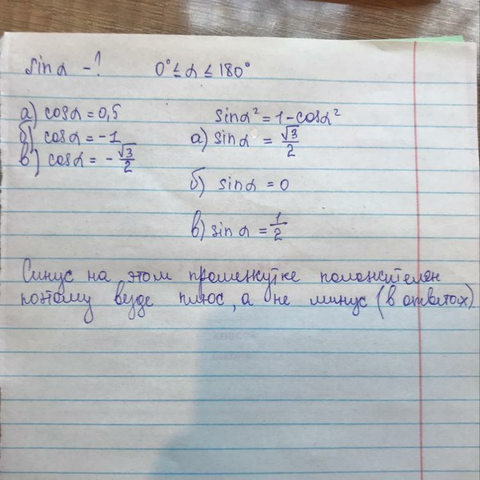 sinα - ? 0° ≤ α ≤ 180°
а) cosα = 0,5
б) cosα = -1
в) cosα = -√3/2
sinα² = 1 - cosα²
а) sinα = √3/2
б) sinα = 0
в) sinα = 1/2
Синус на этом промежутке положителен
поэтому везде плюс, а не минус (в ответах)